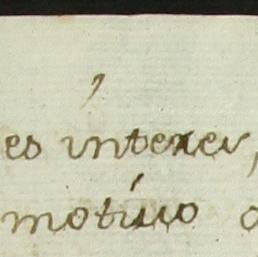 es interes,
motivo